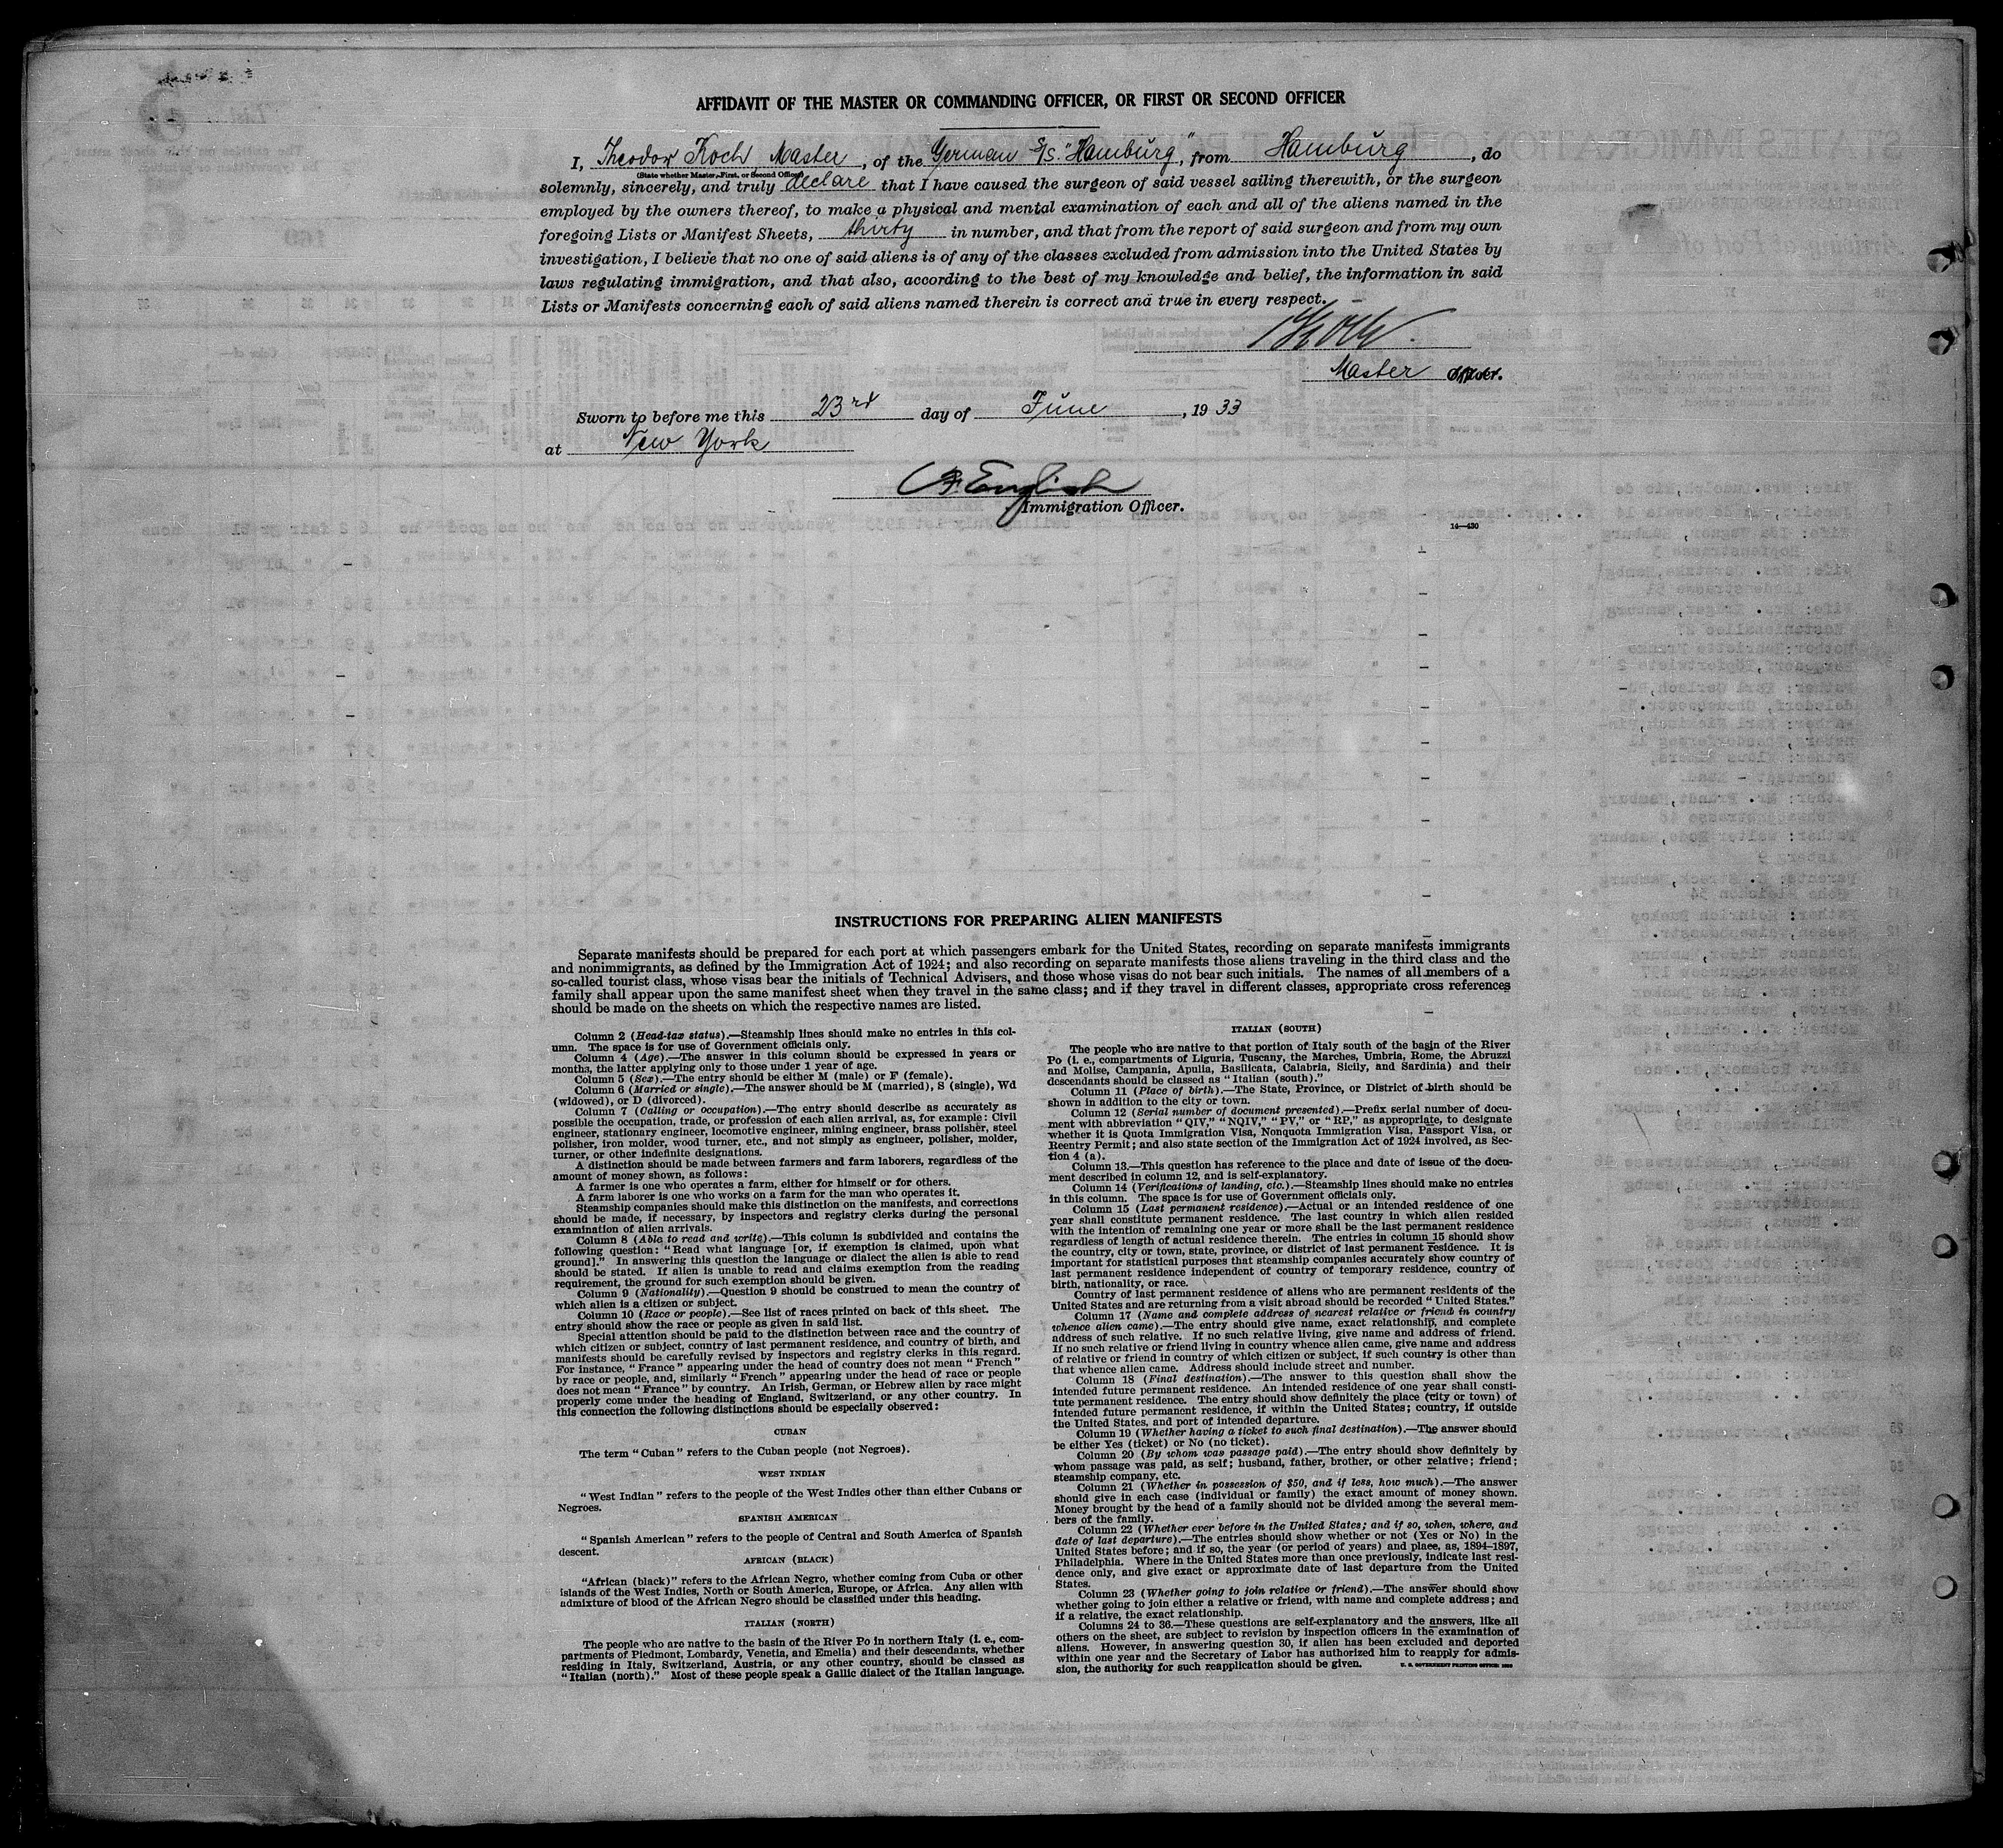 AFFIDAVIT OF THE MASTER OR COMMANDING OFFICER, OR FIRST OR SECOND OFFICER
I, Theodor Koch Master, of the German S/S. "Hamburg", from Hamburg, do
(State whether Master, First, or Second Officer)
solemnly, sincerely, and truly declare that I have caused the surgeon of said vessel sailing therewith, or the surgeon
employed by the owners thereof, to make a physical and mental examination of each and all of the aliens named in the
foregoing Lists or Manifest Sheets, thirty in number, and that from the report of said surgeon and from my own
investigation, I believe that no one of said aliens is of any of the classes excluded from admission into the United States by
laws regulating immigration, and that also, according to the best of my knowledge and belief, the information in said
Lists or Manifests concerning each of said aliens named therein is correct and true in every respect.
Koch.
Master Officer.
Sworn to before me this 23rd day of June, 1933
at New York
English
Immigration Officer.
14—430
INSTRUCTIONS FOR PREPARING ALIEN MANIFESTS
Separate manifests should be prepared for each port at which passengers embark for the United States, recording on separate manifests immigrants
and nonimmigrants, as defined by the Immigration Act of 1924; and also recording on separate manifests those aliens traveling in the third class and the
so-called tourist class, whose visas bear the initials of Technical Advisers, and those whose visas do not bear such initials. The names of all members of a
family shall appear upon the same manifest sheet when they travel in the same class; and if they travel in different classes, appropriate cross references
should be made on the sheets on which the respective names are listed.
Column 2 (Head-tax status).—Steamship lines should make no entries in this col-
umn. The space is for use of Government officials only.
Column 4 (Age).—The answer in this column should be expressed in years or
months, the latter applying only to those under 1 year of age.
Column 5 (Sex).—The entry should be either M (male) or F (female).
Column 6 (Married or single).—The answer should be M (married), S (single), Wd
(widowed), or D (divorced).
Column 7 (Calling or occupation).—The entry should describe as accurately as
possible the occupation, trade, or profession of each alien arrival, as, for example: Civil
engineer, stationary engineer, locomotive engineer, mining engineer, brass polisher, steel
polisher, iron molder, wood turner, etc., and not simply as engineer, polisher, molder,
turner, or other indefinite designations.
A distinction should be made between farmers and farm laborers, regardless of the
amount of money shown, as follows:
A farmer is one who operates a farm, either for himself or for others.
A farm laborer is one who works on a farm for the man who operates it.
Steamship companies should make this distinction on the manifests, and corrections
should be made, if necessary, by inspectors and registry clerks during the personal
examination of alien arrivals.
Column 8 (Able to read and write).—This column is subdivided and contains the
following question: "Read what language [or, if exemption is claimed, upon what
ground]." In answering this question the language or dialect the alien is able to read
should be stated. If alien is unable to read and claims exemption from the reading
requirement, the ground for such exemption should be given.
Column 9 (Nationality).—Question 9 should be construed to mean the country of
which alien is a citizen or subject.
Column 10 (Race or people).—See list of races printed on back of this sheet. The
entry should show the race or people as given in said list.
Special attention should be paid to the distinction between race and the country of
which citizen or subject, country of last permanent residence, and country of birth, and
manifests should be carefully revised by inspectors and registry clerks in this regard.
For instance, "France" appearing under the head of country does not mean "French"
by race or people, and, similarly "French" appearing under the head of race or people
does not mean "France" by country. An Irish, German, or Hebrew alien by race might
properly come under the heading of England, Switzerland, or any other country. In
this connection the following distinctions should be especially observed:
CUBAN
The term "Cuban" refers to the Cuban people (not Negroes).
WEST INDIAN
"West Indian" refers to the people of the West Indies other than either Cubans or
Negroes.
SPANISH AMERICAN
"Spanish American" refers to the people of Central and South America of Spanish
descent.
AFRICAN (BLACK)
"African (black)" refers to the African Negro, whether coming from Cuba or other
islands of the West Indies, North or South America, Europe, or Africa. Any alien with
admixture of blood of the African Negro should be classified under this heading.
ITALIAN (NORTH)
The people who are native to the basin of the River Po in northern Italy (i. e., com-
partments of Piedmont, Lombardy, Venetia, and Emelia) and their descendants, whether
residing in Italy, Switzerland, Austria, or any other country, should be classed as
"Italian (north)." Most of these people speak a Gallic dialect of the Italian language.
ITALIAN (SOUTH)
The people who are native to that portion of Italy south of the basin of the River
Po (i. e., compartments of Liguria, Tuscany, the Marches, Umbria, Rome, the Abruzzi
and Molise, Campania, Apulia, Basilicata, Calabria, Sicily, and Sardinia) and their
descendants should be classed as "Italian (south)."
Column 11 (Place of birth).—The State, Province, or District of birth should be
shown in addition to the city or town.
Column 12 (Serial number of document presented).—Prefix serial number of docu-
ment with abbreviation "QIV," "NQIV," "PV," or "RP," as appropriate, to designate
whether it is Quota Immigration Visa, Nonquota Immigration Visa, Passport Visa, or
Reentry Permit; and also state section of the Immigration Act of 1924 involved, as Sec-
tion 4 (a).
Column 13.—This question has reference to the place and date of issue of the docu-
ment described in column 12, and is self-explanatory.
Column 14 (Verifications of landing, etc.).—Steamship lines should make no entries
in this column. The space is for use of Government officials only.
Column 15 (Last permanent residence).—Actual or an intended residence of one
year shall constitute permanent residence. The last country in which alien resided
with the intention of remaining one year or more shall be the last permanent residence
regardless of length of actual residence therein. The entries in column 15 should show
the country, city or town, state, province, or district of last permanent residence. It is
important for statistical purposes that steamship companies accurately show country of
last permanent residence independent of country of temporary residence, country of
birth, nationality, or race.
Country of last permanent residence of aliens who are permanent residents of the
United States and are returning from a visit abroad should be recorded "United States."
Column 17 (Name and complete address of nearest relative or friend in country
whence alien came).—The entry should give name, exact relationship, and complete
address of such relative. If no such relative living, give name and address of friend.
If no such relative or friend living in country whence alien came, give name and address
of relative or friend in country of which citizen or subject, if such country is other than
that whence alien came. Address should include street and number.
Column 18 (Final destination).—The answer to this question shall show the
intended future permanent residence. An intended residence of one year shall consti-
tute permanent residence. The entry should show definitely the place (city or town) of
intended future permanent residence, if within the United States; country, if outside
the United States, and port of intended departure.
Column 19 (Whether having a ticket to such final destination).—The answer should
be either Yes (ticket) or No (no ticket).
Column 20 (By whom was passage paid).—The entry should show definitely by
whom passage was paid, as self; husband, father, brother, or other relative; friend;
steamship company, etc.
Column 21 (Whether in possession of $50, and if less, how much).—The answer
should give in each case (individual or family) the exact amount of money shown.
Money brought by the head of a family should not be divided among the several mem-
bers of the family.
Column 22 (Whether ever before in the United States; and if so, when, where, and
date of last departure).—The entries should show whether or not (Yes or No) in the
United States before; and if so, the year (or period of years) and place, as, 1894–1897,
Philadelphia. Where in the United States more than once previously, indicate last resi-
dence only, and give exact or approximate date of last departure from the United
States.
Column 23 (Whether going to join relative or friend).—The answer should show
whether going to join either a relative or friend, with name and complete address; and
if a relative, the exact relationship.
Columns 24 to 36.—These questions are self-explanatory and the answers, like all
others on the sheet, are subject to revision by inspection officers in the examination of
aliens. However, in answering question 30, if alien has been excluded and deported
within one year and the Secretary of Labor has authorized him to reapply for admis-
sion, the authority for such reapplication should be given.
U. S. GOVERNMENT PRINTING OFFICE